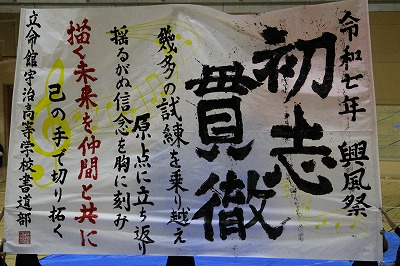 令和七年 興風祭
初志
貫徹
幾多の試練を乗り越え
原点に立ち返り
揺るがぬ信念を胸に刻み
描く未来を仲間と共に
己の手で切り拓く
立命館宇治高等学校書道部